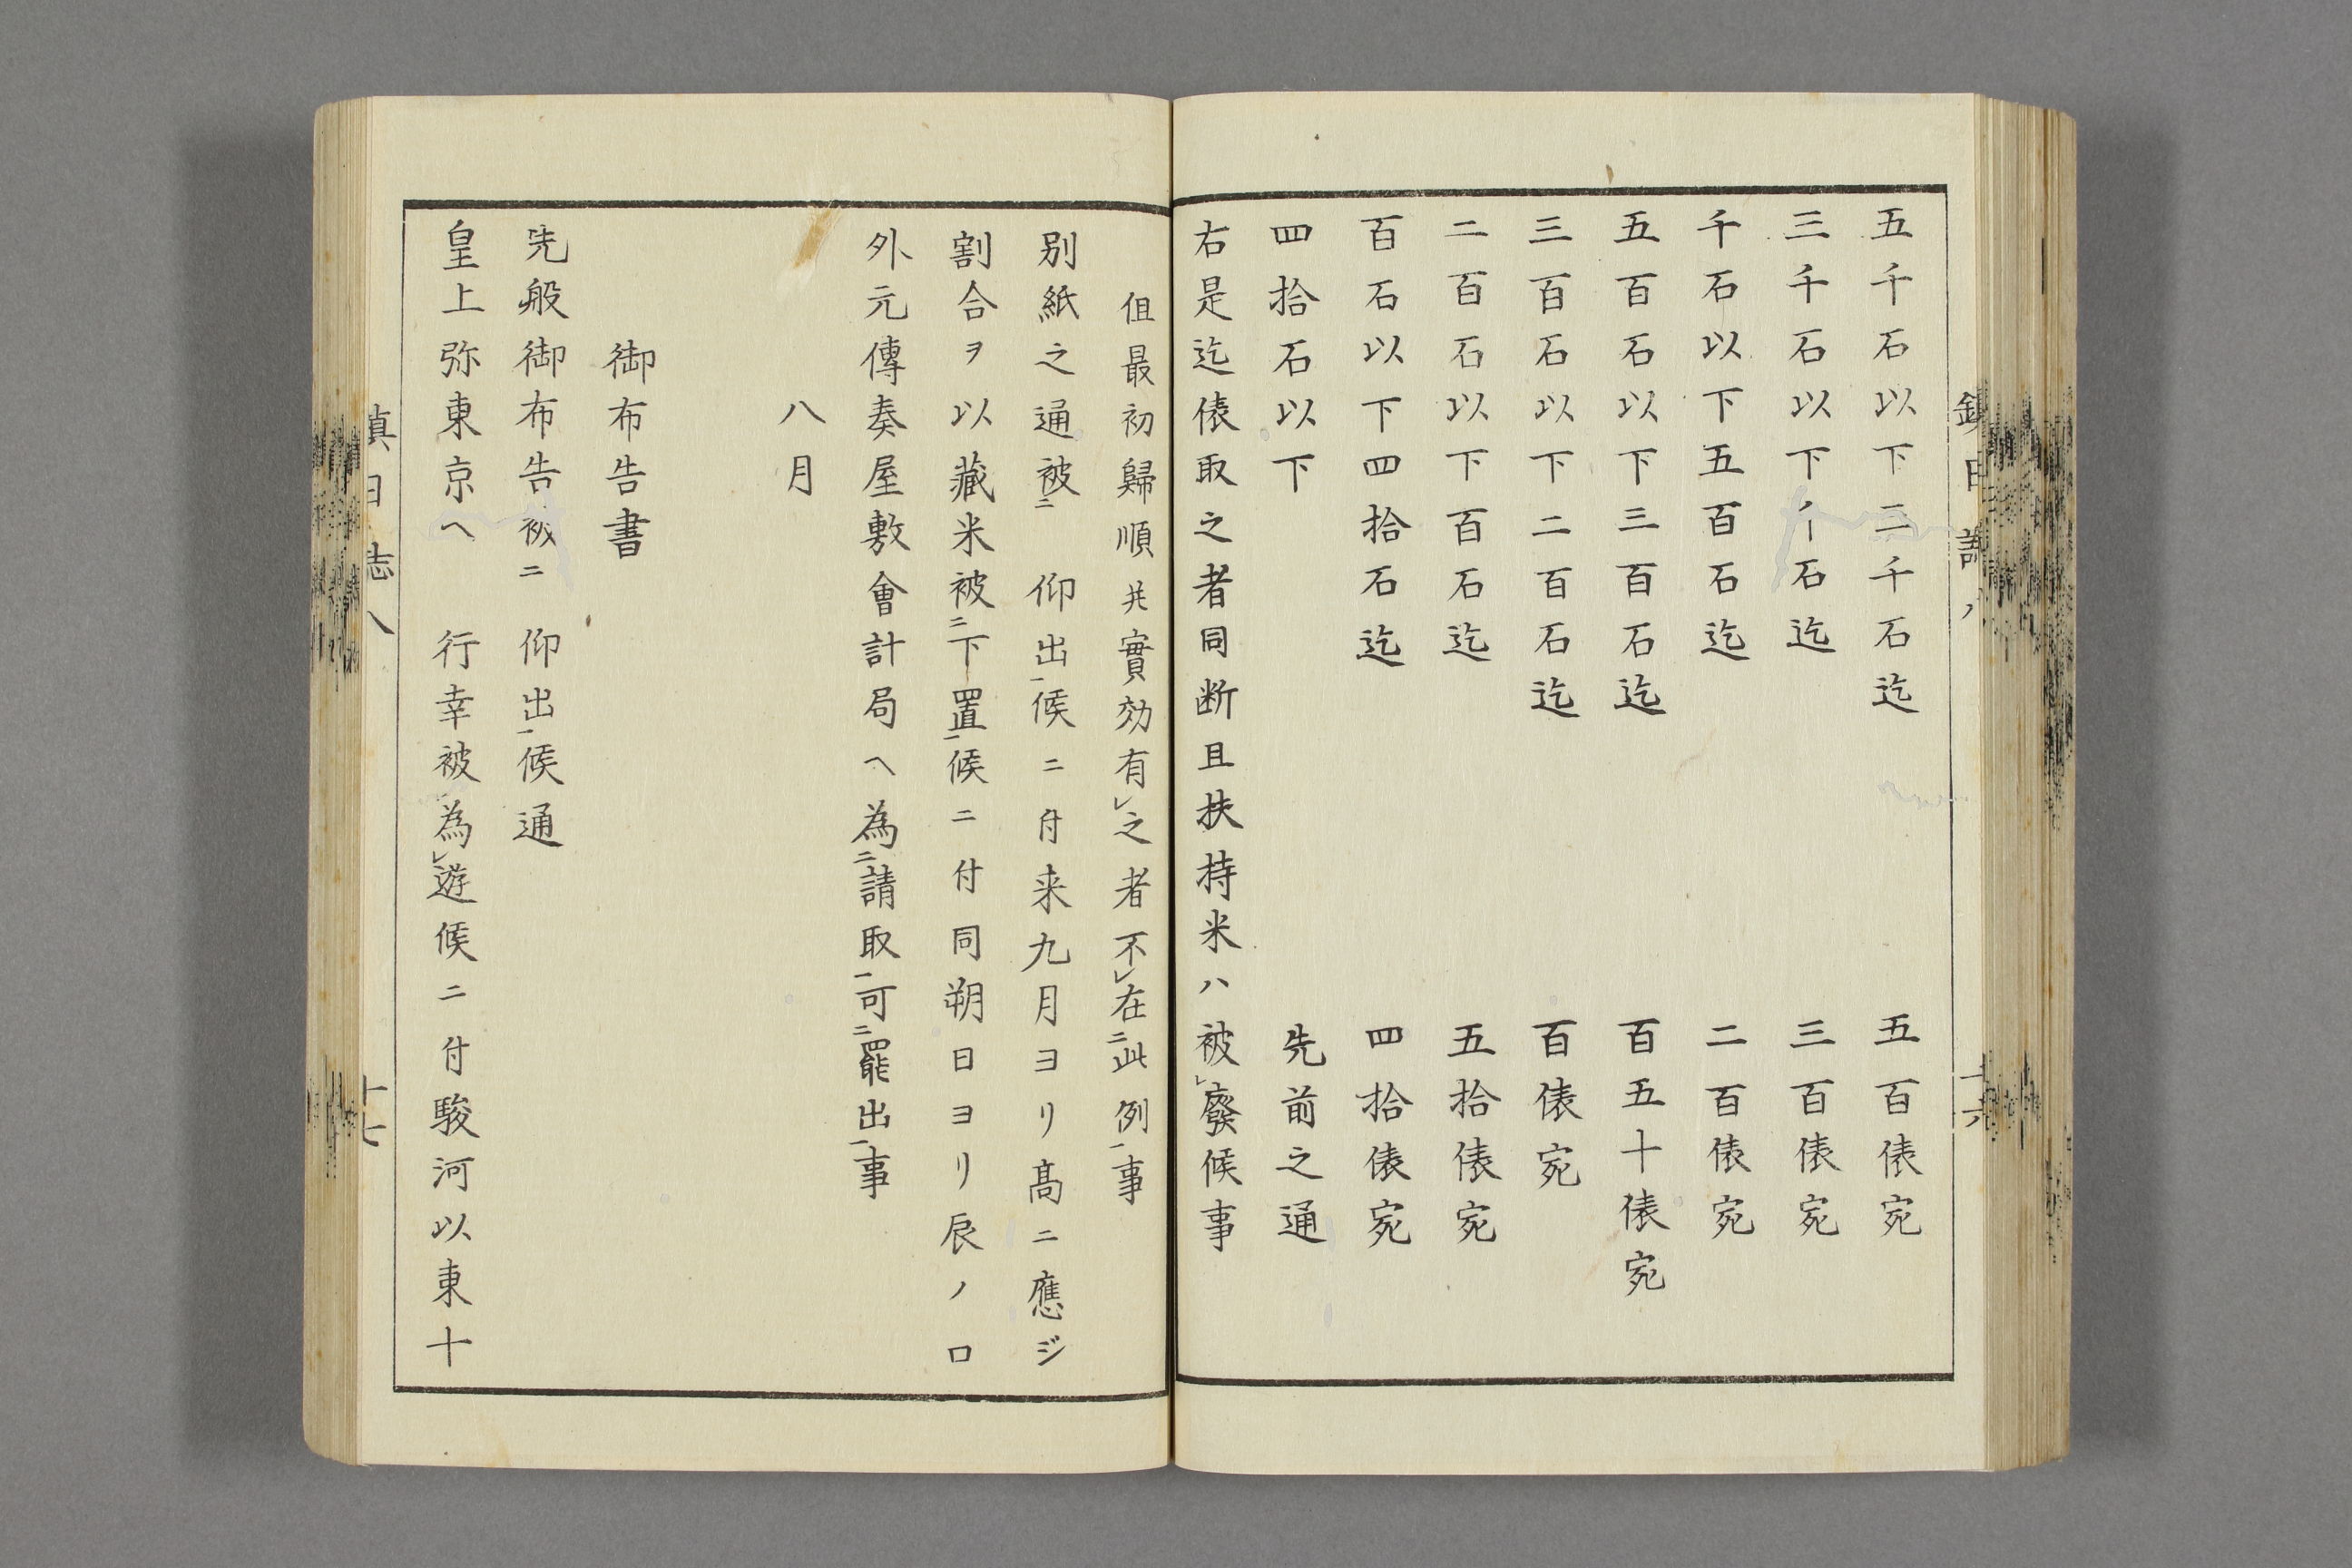 五千石以下三千石迄　五百俵宛
三千石以下千石迄　三百俵宛
千石以下五百石迄　二百俵宛
五百石以下三百石迄　百五十俵宛
三百石以下二百石迄　百俵宛
二百石以下百石迄　五拾俵宛
百石以下四拾石迄　四拾俵宛
四拾石以下　先前之通
右是迄俵取之者同断且扶持米ハ被㆑廢候事
伹最初歸順共實効有㆑之者不㆑在㆓此例㆒事
別紙之通被㆓　仰出㆒候ニ付来九月ヨリ髙ニ應ジ
割合ヲ以藏米被㆓下置㆒候ニ付同朔日ヨリ辰ノ口
外元傳奏屋敷會計局ヘ為㆓請取㆒可㆓罷出㆒事
八月
御布告書
先般御布告被㆓　仰出㆒候通
皇上弥東京ヘ　行幸被㆑為㆑遊候ニ付駿河以東十
鎮日誌八
十六
鎮日志八
十七